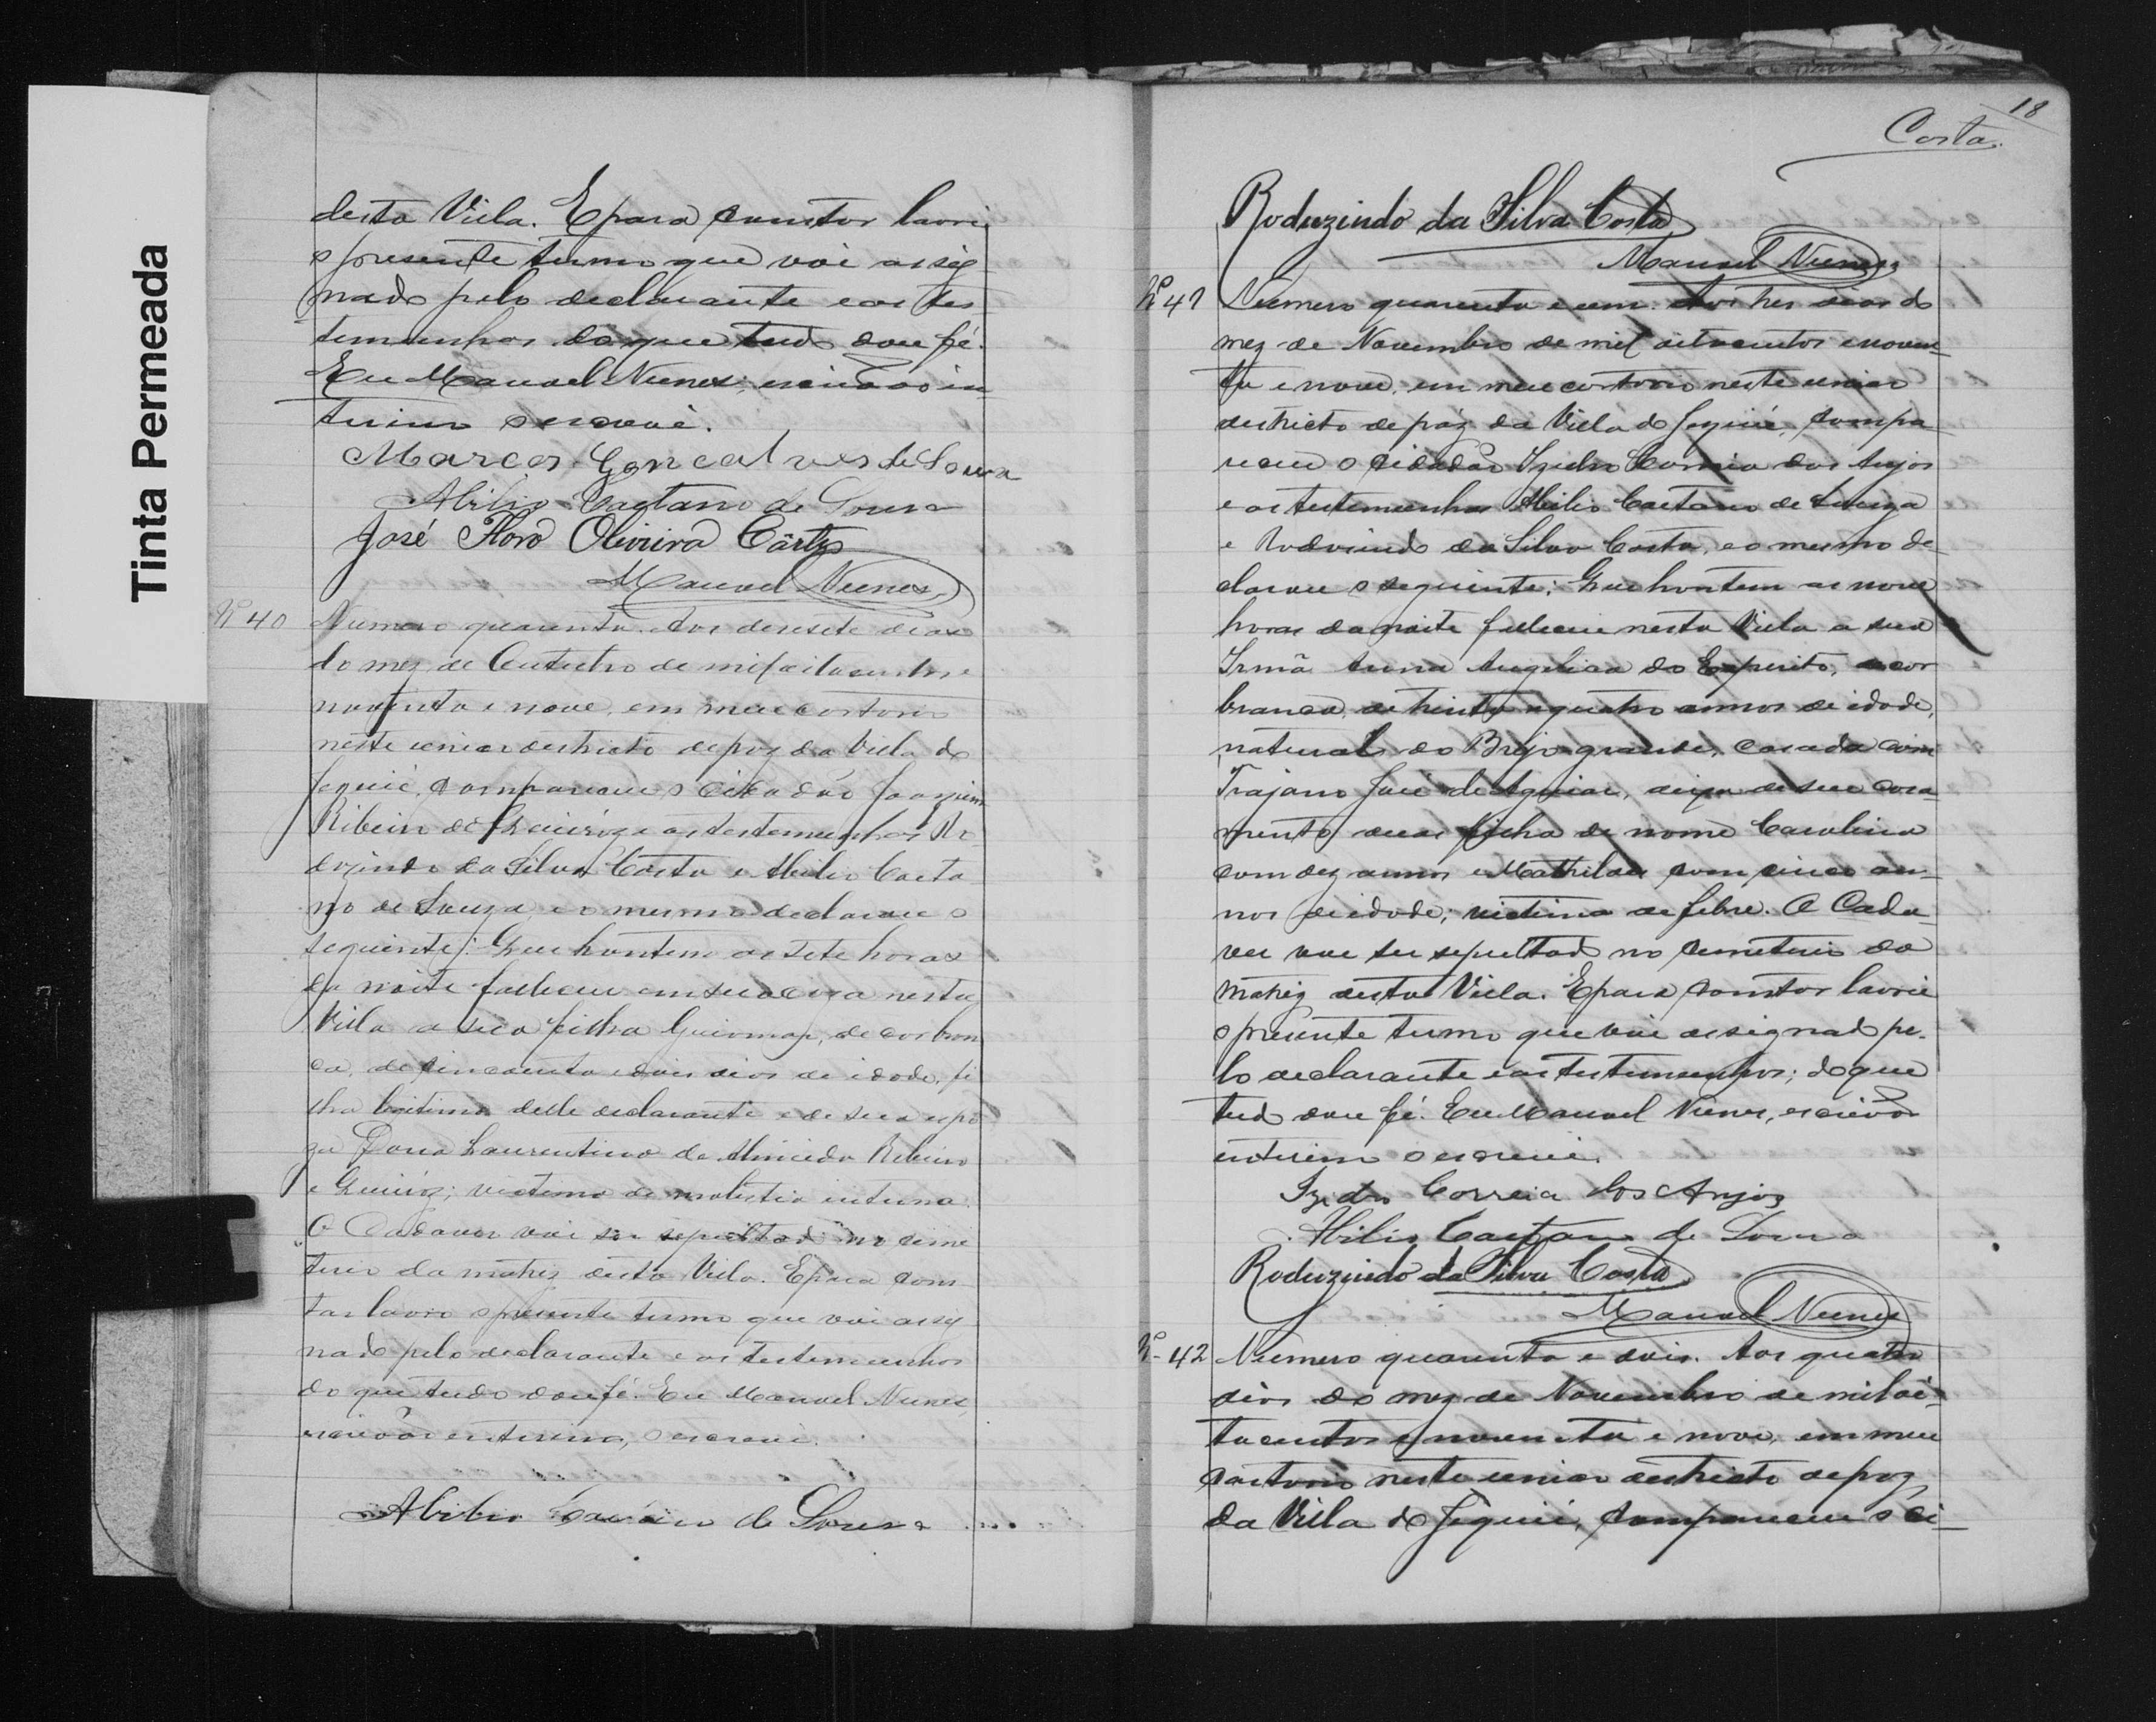 Tinta Permeada
desta Villa. E para constar lavrei
o presente termo que vai assig
nado pelo declarante e as tes
temunhas do que tudo dou fé.
Eu Manoel Nunes, escrivão in
terino o escrevi.
Marcos Goncalves de Souza
Abilio Caetano de Sousa
José Floro Oliveira
Manoel Nunes
Nº 40 Numero quarenta. Aos desesete dias
do mez de Outubro de mil oitocentos e
noventa e nove, em meu cartorio
neste unico destricto de paz da Villa de
Jequié, compareceu o cidadão Joaquim
Ribeiro de Queiróz e as testemunhas Ro
dozindo da Silva Costa e Abilio Caeta
no de Souza, e o mesmo declarou o
seguinte: Que hontem as sete horas
da noite falleceu em sua caza nesta
Villa a sua filha Guiomar, de cor bran
ca, de cincoenta e dois dias de idade, fi
lha legitima delle declarante e de sua espo
za Dona Laurentina de Almeida Ribeiro
e Queiróz; victima de molestia interna.
O Cadaver vai ser sepultado no cimi
terio da matriz desta Villa. E para cons
tar lavro o presente termo que vai assig
nado pelo declarante e as testemunhas
do que tudo dou fé. Eu Manoel Nunes,
escrivão interino, o escrevi.
Abilio Caetano de Sousa
18
Costa.
Roduzindo da Silva Costa
Manoel Nunes
Nº 41 Numero quarenta e um. Aos tres dias do
mez de Novembro de mil oitocentos e noven-
ta e nove, em meu cartorio neste unico
destricto de páz da Villa de Jequié, compa
receu o cidadão Izidro Correia dos Anjos
e as testemunhas Abilio Caetano de Souza
e Rodozindo da Silva Costa, e o mesmo de-
clarou o seguinte: Que hontem as nove
horas da noite falleceu nesta Villa a sua
Irmã Anna Angelica do Espirito, de cor
branca, de trinta e quatro annos de idade,
natural do Brejo grande, casada com
Trajano José de Aguiar, deixa de seu casa-
mento duas filha de nome Carolina
com dez annos e Mathildes com cinco an-
nos de idade; victima de febre. O Cada-
ver vae ser sepultado no cemeterio da
matriz desta Villa. E para constar lavrei
o presente termo que vai assignado pe-
lo declarante e as testemunhas; do que
tudo dou fé. Eu Manoel Nunes, escrivão
interino o escrevi.
Izidro Correia dos Anjos
Abilio Caetano de Sousa
Roduzindo da Silva Costa
Manoel Nunes
Nº 42 Numero quarenta e dois. Aos quatro
dias do mez de Novembro de mil oi-
tocentos e noventa e nove, em meu
cartorio neste unico destricto de paz
da Villa de Jequié, compareceu o ci-